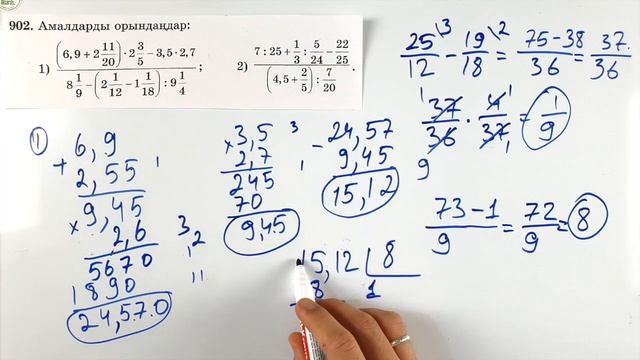 902. Амалдарды орындаңдар:
1) \frac{(6,9 + 2\frac{11}{20}) \cdot 2\frac{3}{5} - 3,5 \cdot 2,7}{8\frac{1}{9} - (2\frac{1}{12} - 1\frac{1}{18}) : 9\frac{1}{4}} ;
2) \frac{7 : 25 + \frac{1}{3} : \frac{5}{24} - \frac{22}{25}}{(4,5 + \frac{2}{5}) : \frac{7}{20}} .
1)
6,9
+ 2,55
9,45
× 2,6
5670
1890
24,57.0
3 2
1
11
× 3,5
2,7
245
70
9,45
3
1
- 24,57
9,45
15,12
\frac{25}{12}^{\3} - \frac{19}{18}^{\2} = \frac{75-38}{36} = \frac{37}{36}
\frac{37}{36} \cdot \frac{4}{37} = \frac{1}{9}
1 1
9
\frac{73-1}{9} = \frac{72}{9} = 8
15,12 | 8
8 1